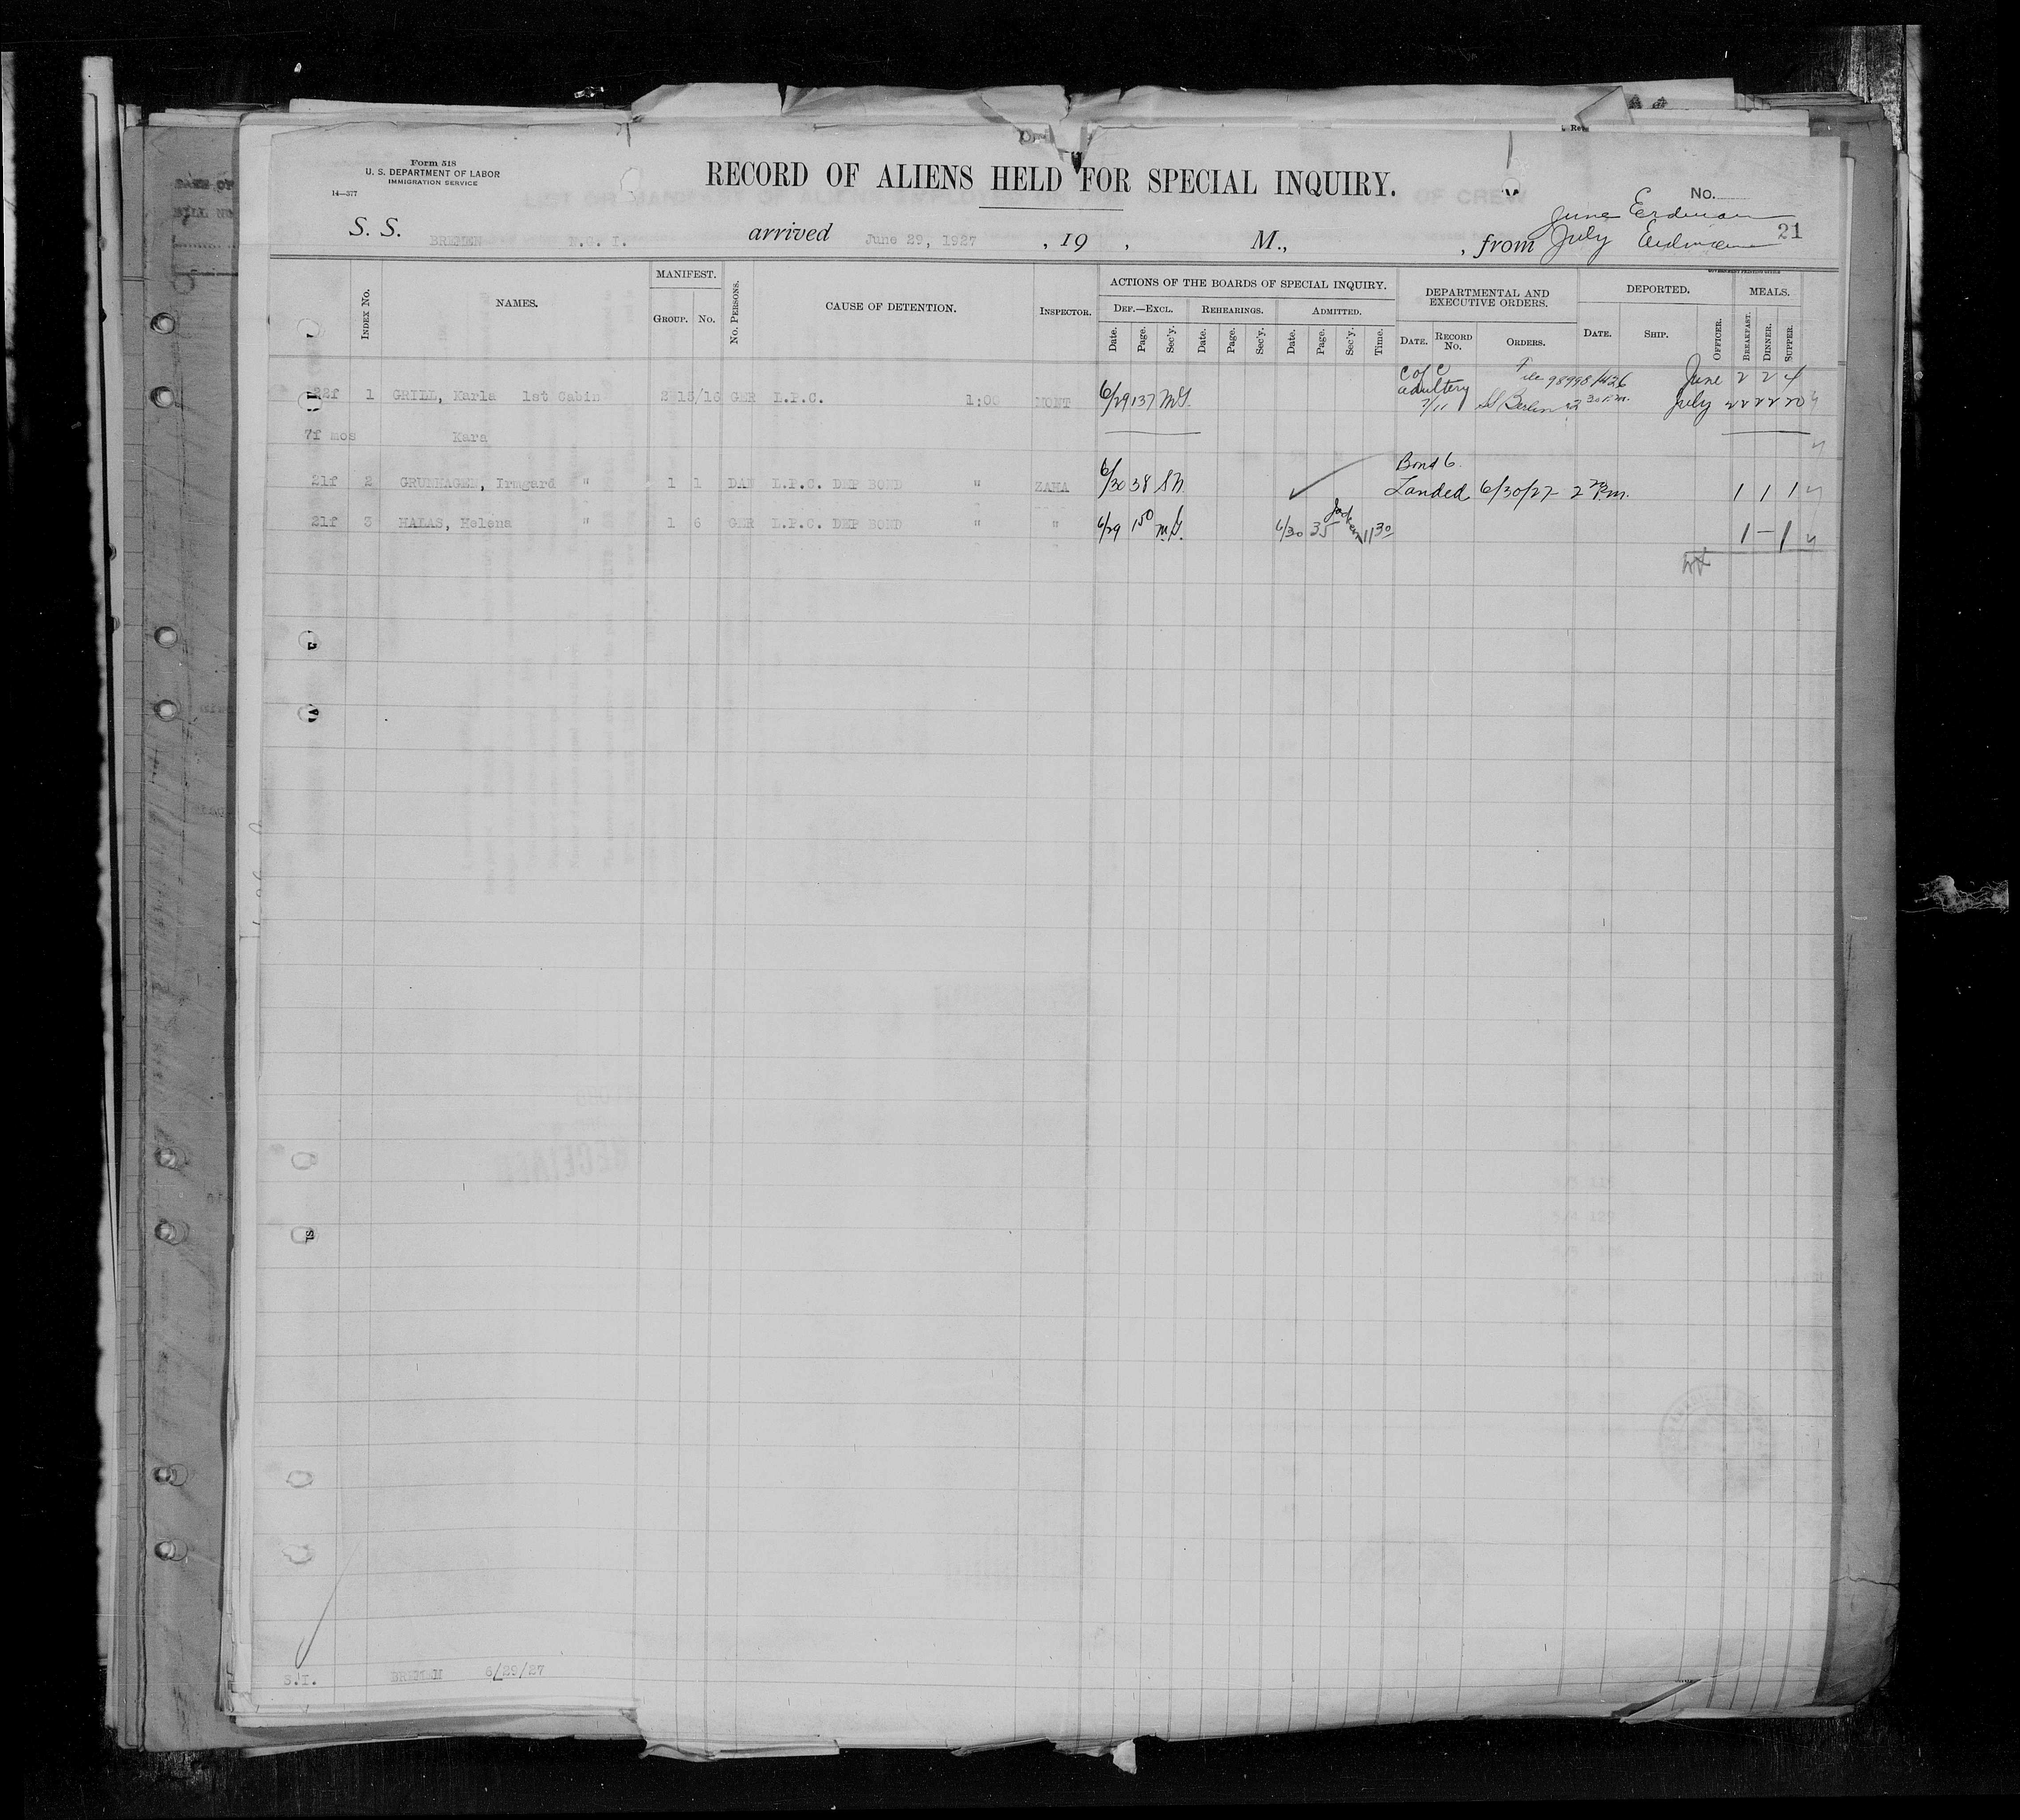 Form 518
U. S. DEPARTMENT OF LABOR
IMMIGRATION SERVICE
14—377
RECORD OF ALIENS HELD FOR SPECIAL INQUIRY.
No.
June Erdman
S. S. BREMEN N. G. I. arrived June 29, 1927 , 19 , M., , from July Erdman 21
GOVERNMENT PRINTING OFFICE
INDEX NO. NAMES. MANIFEST. GROUP. NO. NO. PERSONS. CAUSE OF DETENTION. INSPECTOR.
ACTIONS OF THE BOARDS OF SPECIAL INQUIRY.
DEF.—EXCL. REHEARINGS. ADMITTED.
Date. Page. Sec'y. Date. Page. Sec'y. Date. Page. Sec'y. Time.
DEPARTMENTAL AND EXECUTIVE ORDERS.
DATE. RECORD NO. ORDERS.
DEPORTED.
DATE. SHIP. OFFICER.
MEALS.
BREAKFAST. DINNER. SUPPER.
C of C 98998/426 June 2 2 4
22f 1 GRILL, Karla 1st Cabin 2 15/16 GER L.P.C. 1:00 MONT 6/29 137 M.G. adultery
7/11 SS Berlin July 22 22 20
7f mos Kara
Bond 6.
21f 2 GRUNHAGEN, Irmgard " 1 1 DAN L.P.C. DEP BOND " ZAHA 6/30 38 S.N. Landed 6/30/27 2 P.m. 1 1 1
21f 3 HALAS, Helena " 1 6 GER L.P.C. DEP BOND " " 6/29 150 M.G. 6/30 35 11 30 1 – 1
S.I. BREMEN 6/29/27